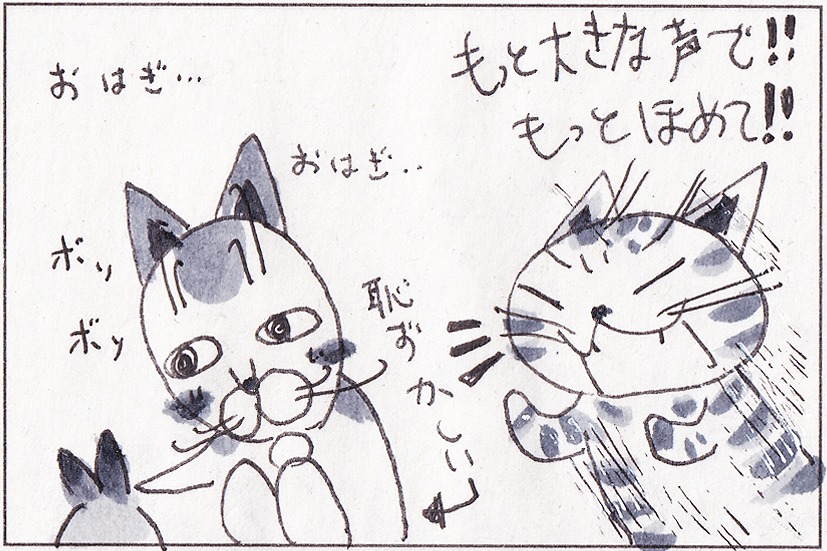 もっと大きな声で!!
もっとほめて!!
おはぎ…
おはぎ‥
ボッ
ボッ
恥ずかしい